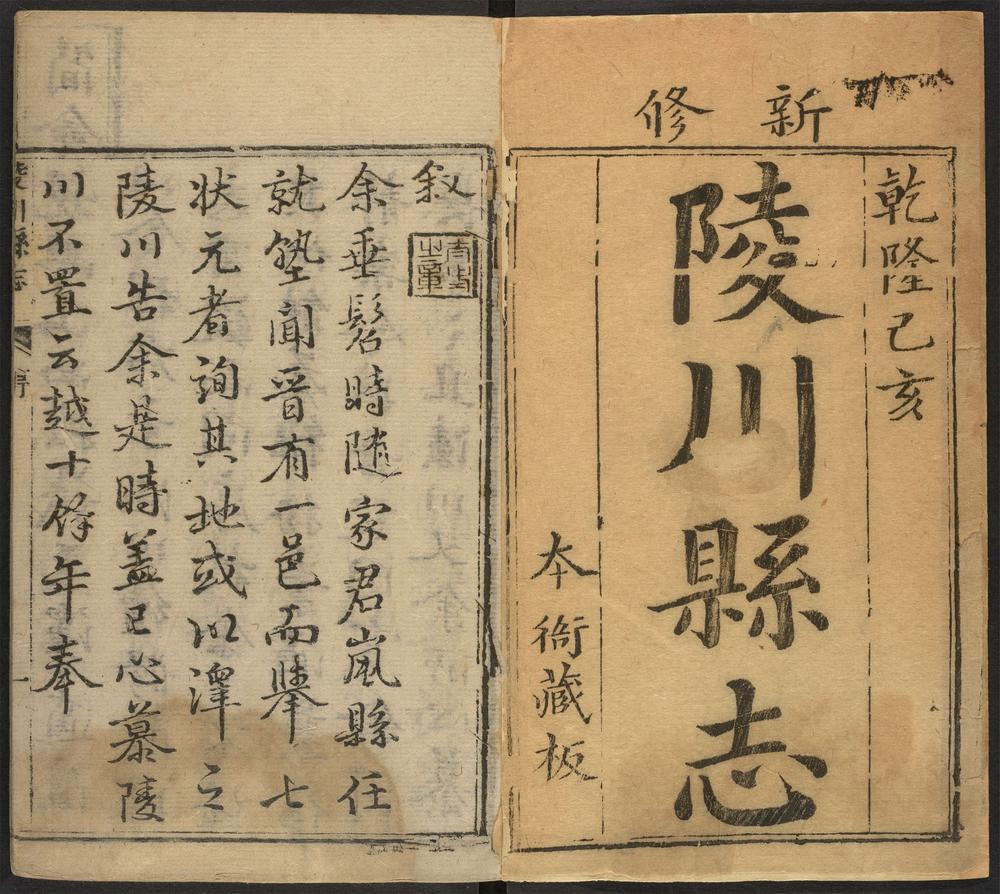 新修
乾隆己亥
陵川縣志
本衙藏板
叙
余垂髫時隨家君嵐縣任
就塾聞晉有一邑而舉七
状元者詢其地或以澤之
陵川告余是時蓋已心慕陵
川不置云越十餘年奉
陵川縣志
序
一